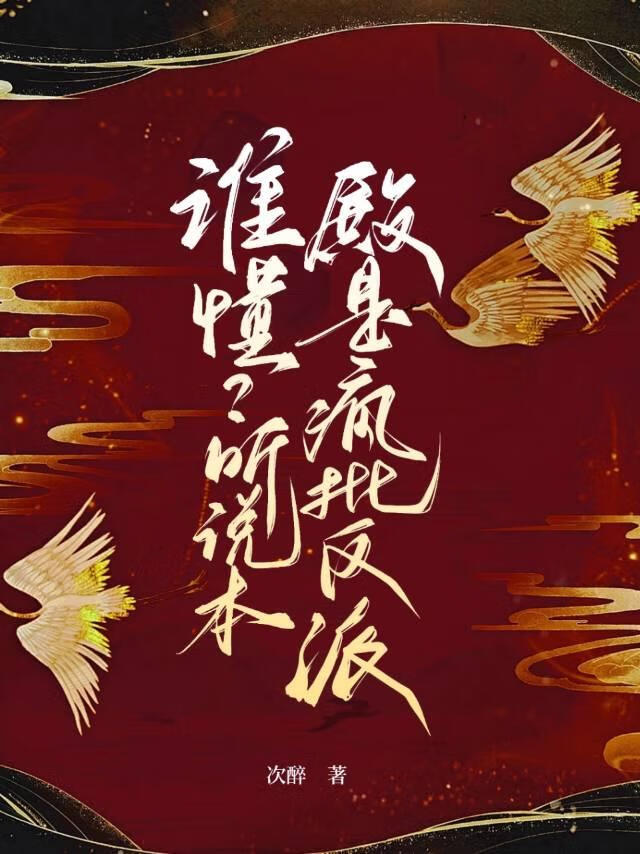 谁懂？听说本
殿是疯批反派
次醉 著